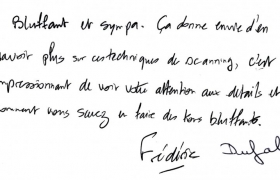 Bluffant et sympa. Ça donne envie d'en
savoir plus sur ces techniques de scanning, c'est
impressionnant de voir votre attention aux détails et
comment vous savez en faire des tons bluffants.
Frédéric